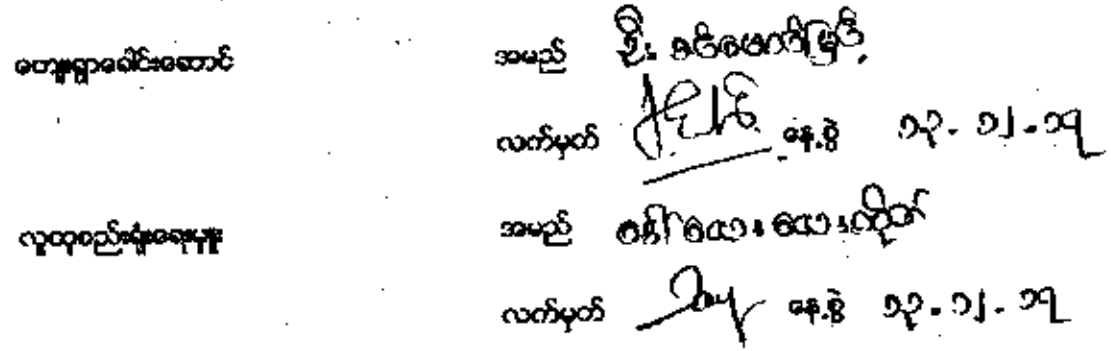 ကျေးရွာခေါင်းဆောင် အမည် ဦး ခင်မောင်မြင့်
လက်မှတ် နေ့စွဲ ၁၃.၁၂.၁၇
လူထုစည်းရုံးရေးမှူး အမည် ဒေါ်လေးလေးတိုက်
လက်မှတ် နေ့စွဲ ၁၃.၁၂.၁၇